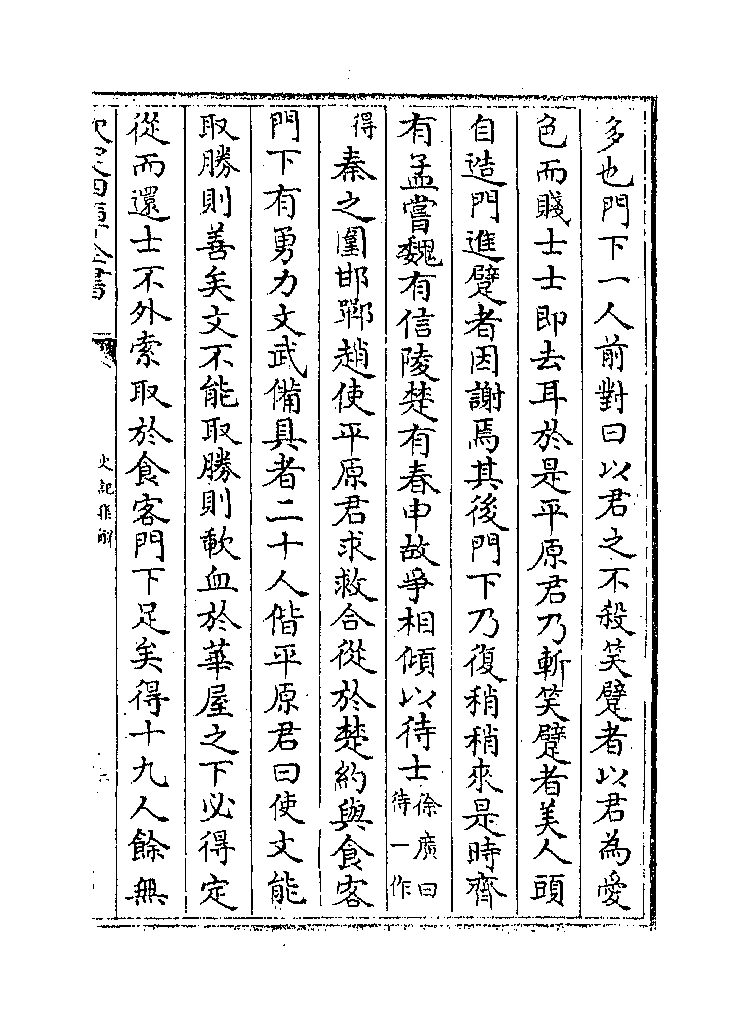 多也門下一人前對曰以君之不殺笑躄者以君為愛
色而賤士士即去耳於是平原君乃斬笑躄者美人頭
自造門進躄者因謝焉其後門下乃復稍稍來是時齊
有孟嘗魏有信陵楚有春申故爭相傾以待士徐廣曰待一作
得秦之圍邯鄲趙使平原君求救合從於楚約與食客
門下有勇力文武備具者二十人偕平原君曰使文能
取勝則善矣文不能取勝則歃血於華屋之下必得定
從而還士不外索取於食客門下足矣得十九人餘無
欽定四庫全書
史記集解